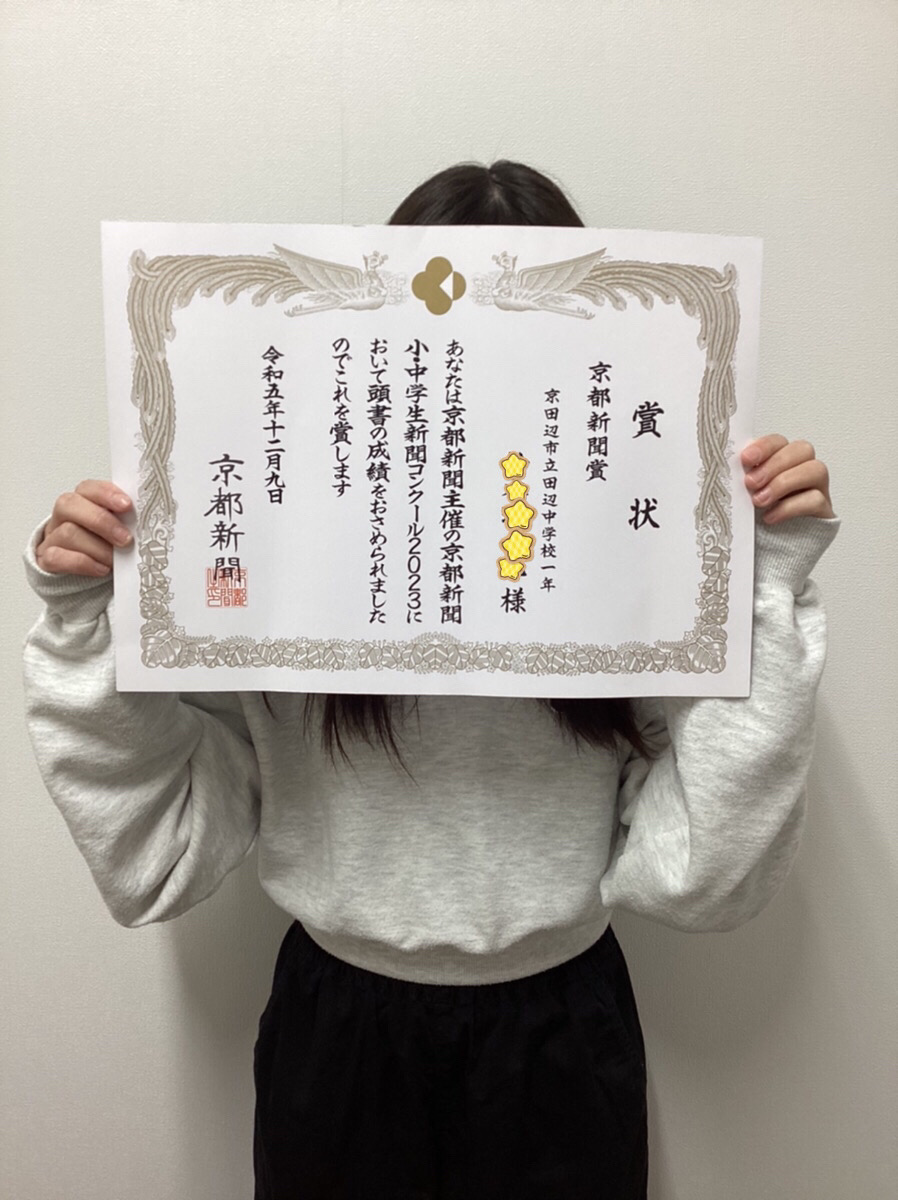 賞状
京都新聞賞
京田辺市立田辺中学校一年
様
あなたは京都新聞主催の京都新聞
小・中学生新聞コンクール2023に
おいて頭書の成績をおさめられました
のでこれを賞します
令和五年十二月九日
京都新聞